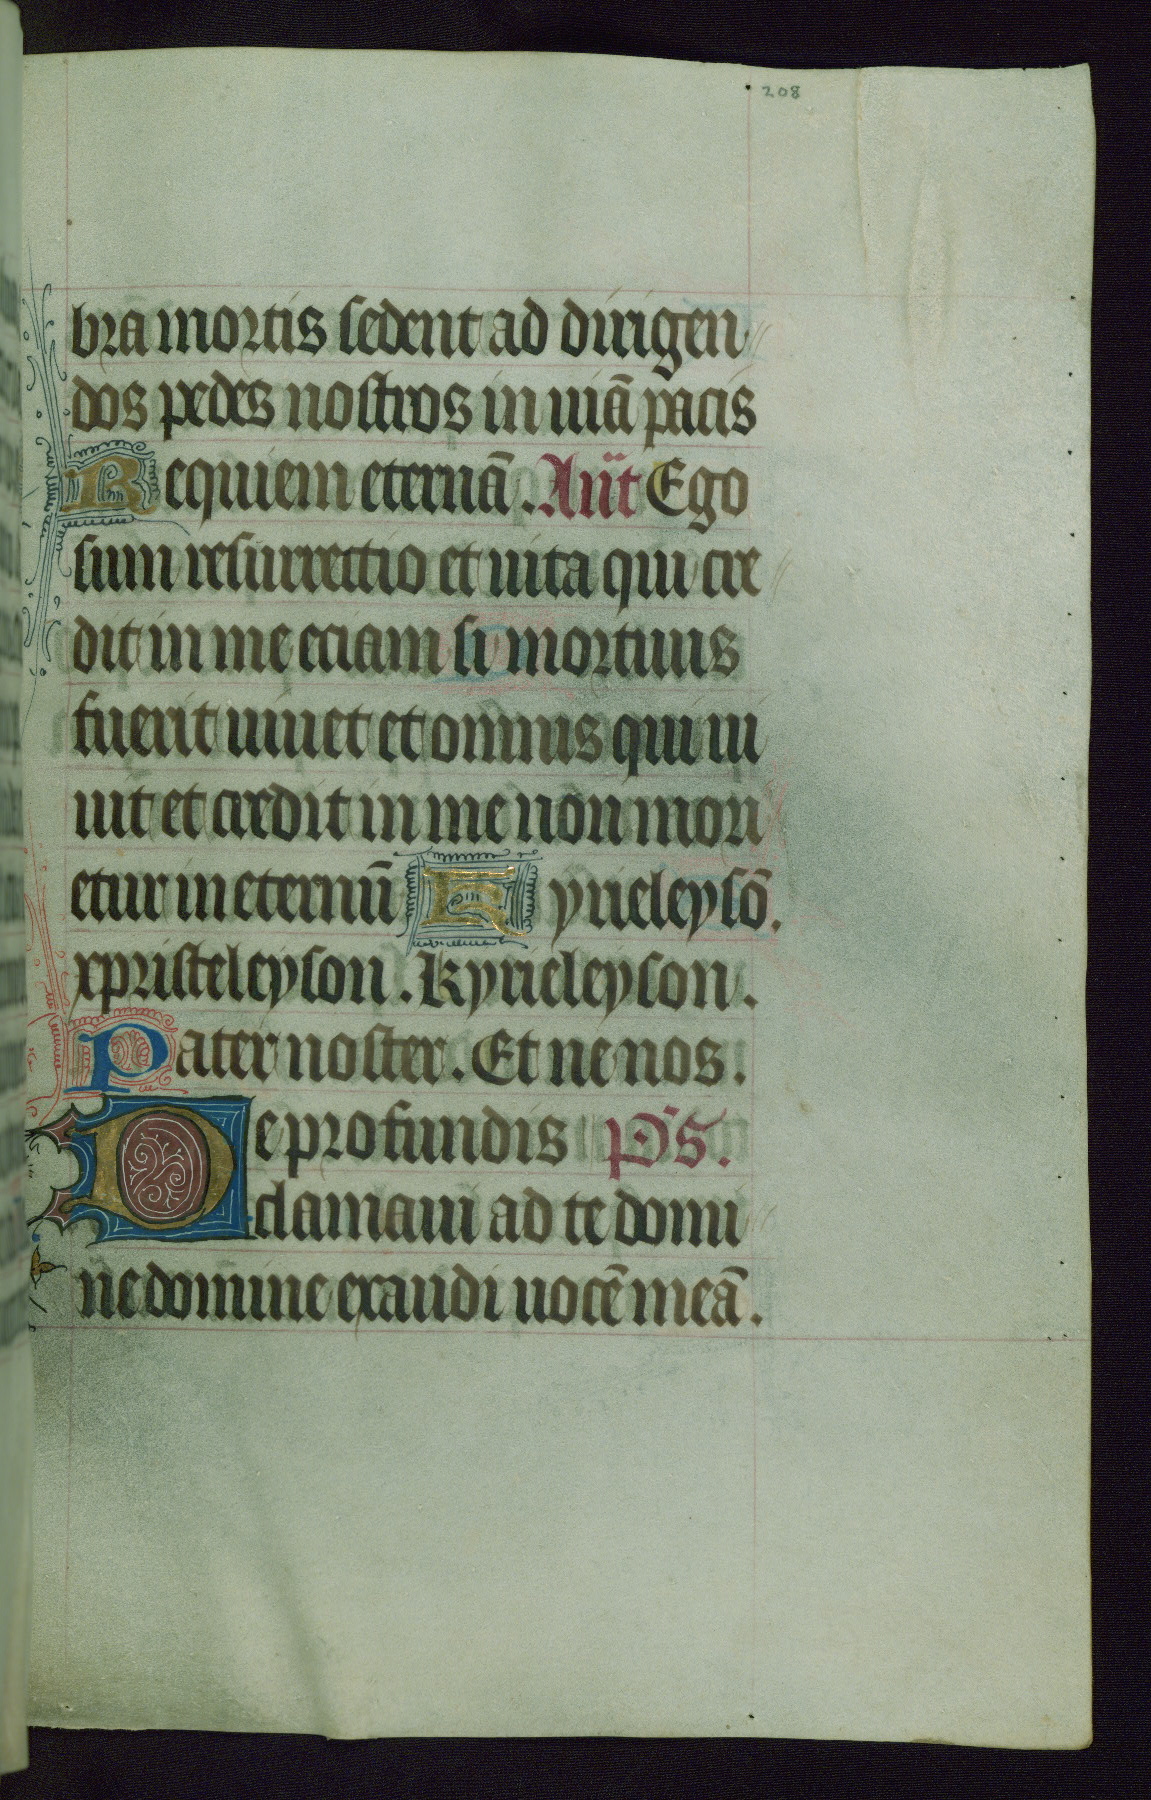 208
bra mortis sedent ad dirigen
dos pedes nostros in uiã pacis
Requiem eternã. Añt Ego
sum resurrectio et uita qui cre
dit in me eciam si mortuus
fuerit uiuet et omnis qui ui
uit et credit in me non mori
etur in eternũ Kyrieleysõ.
xpristeleyson. Kyrieleyson.
Pater noster. Et ne nos.
De profundis p̃s.
clamaui ad te domi
ne domine exaudi uocẽ meã.